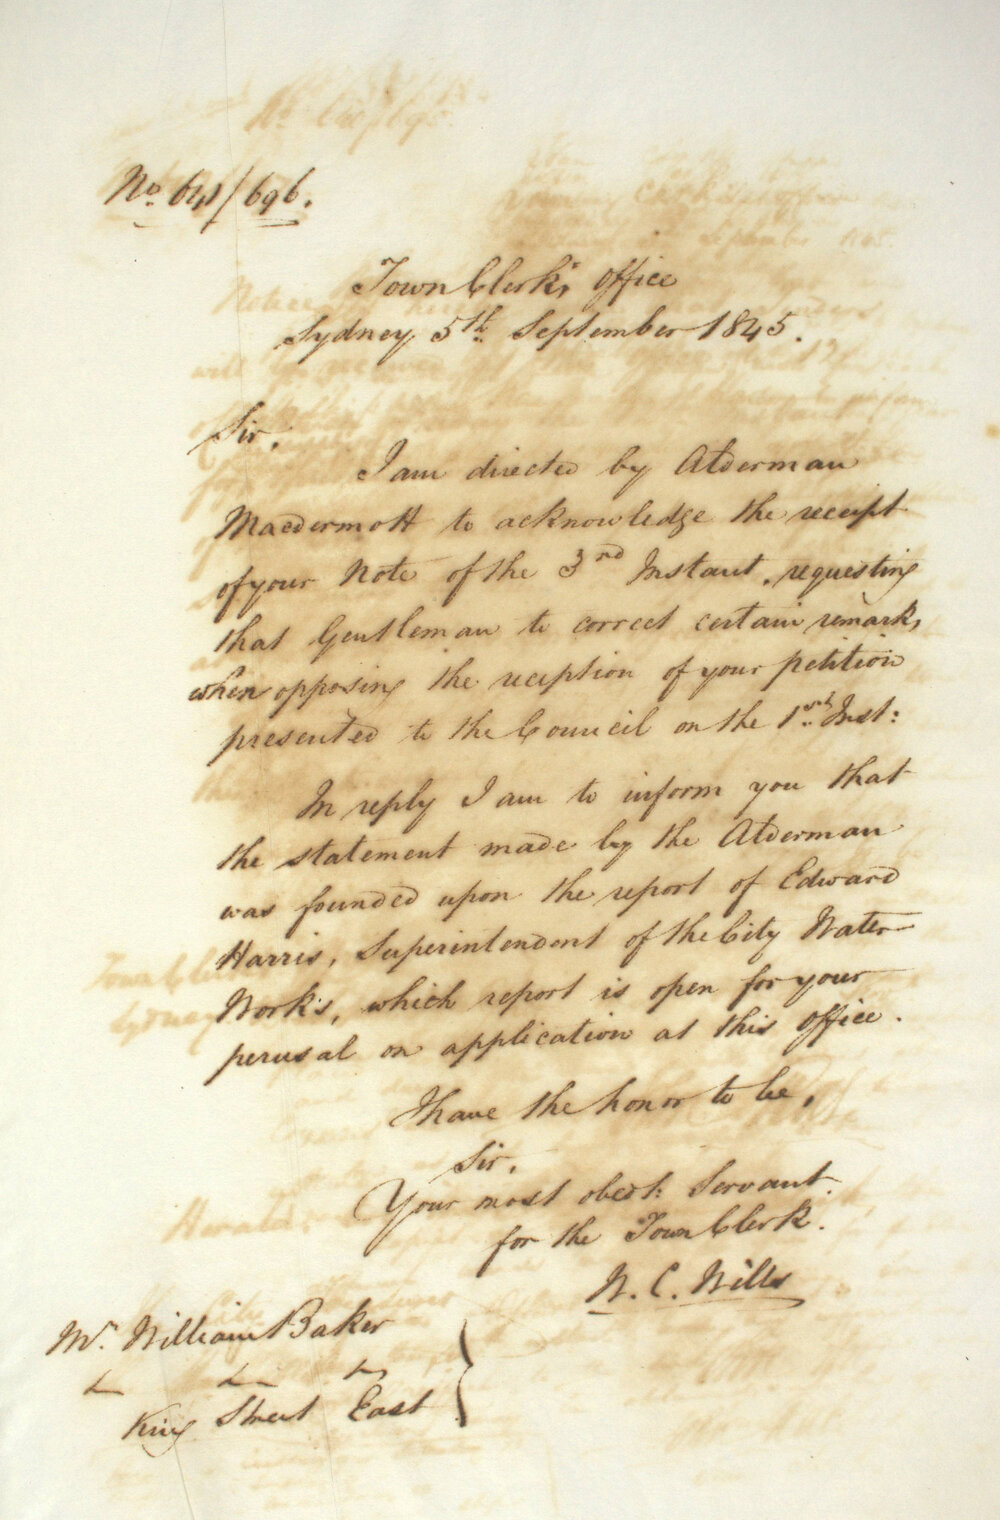 No. 641/696.
Town Clerk's Office
Sydney 5th. September 1845.
Sir,
I am directed by Alderman
Macdermott to acknowledge the receipt
of your Note of the 3rd Instant, requesting
that Gentleman to correct certain remarks,
when opposing the reception of your petition
presented to the Council on the 1st Inst:
In reply I am to inform you that
the statement made by the Alderman
was founded upon the report of Edward
Harris, Superintendent of the City Water
Works, which report is open for your
perusal on application at this office.
I have the honor to be,
Sir,
Your most obedt: Servant.
for the Town Clerk.
W. C. Wills
Mr. William Baker
King Street East